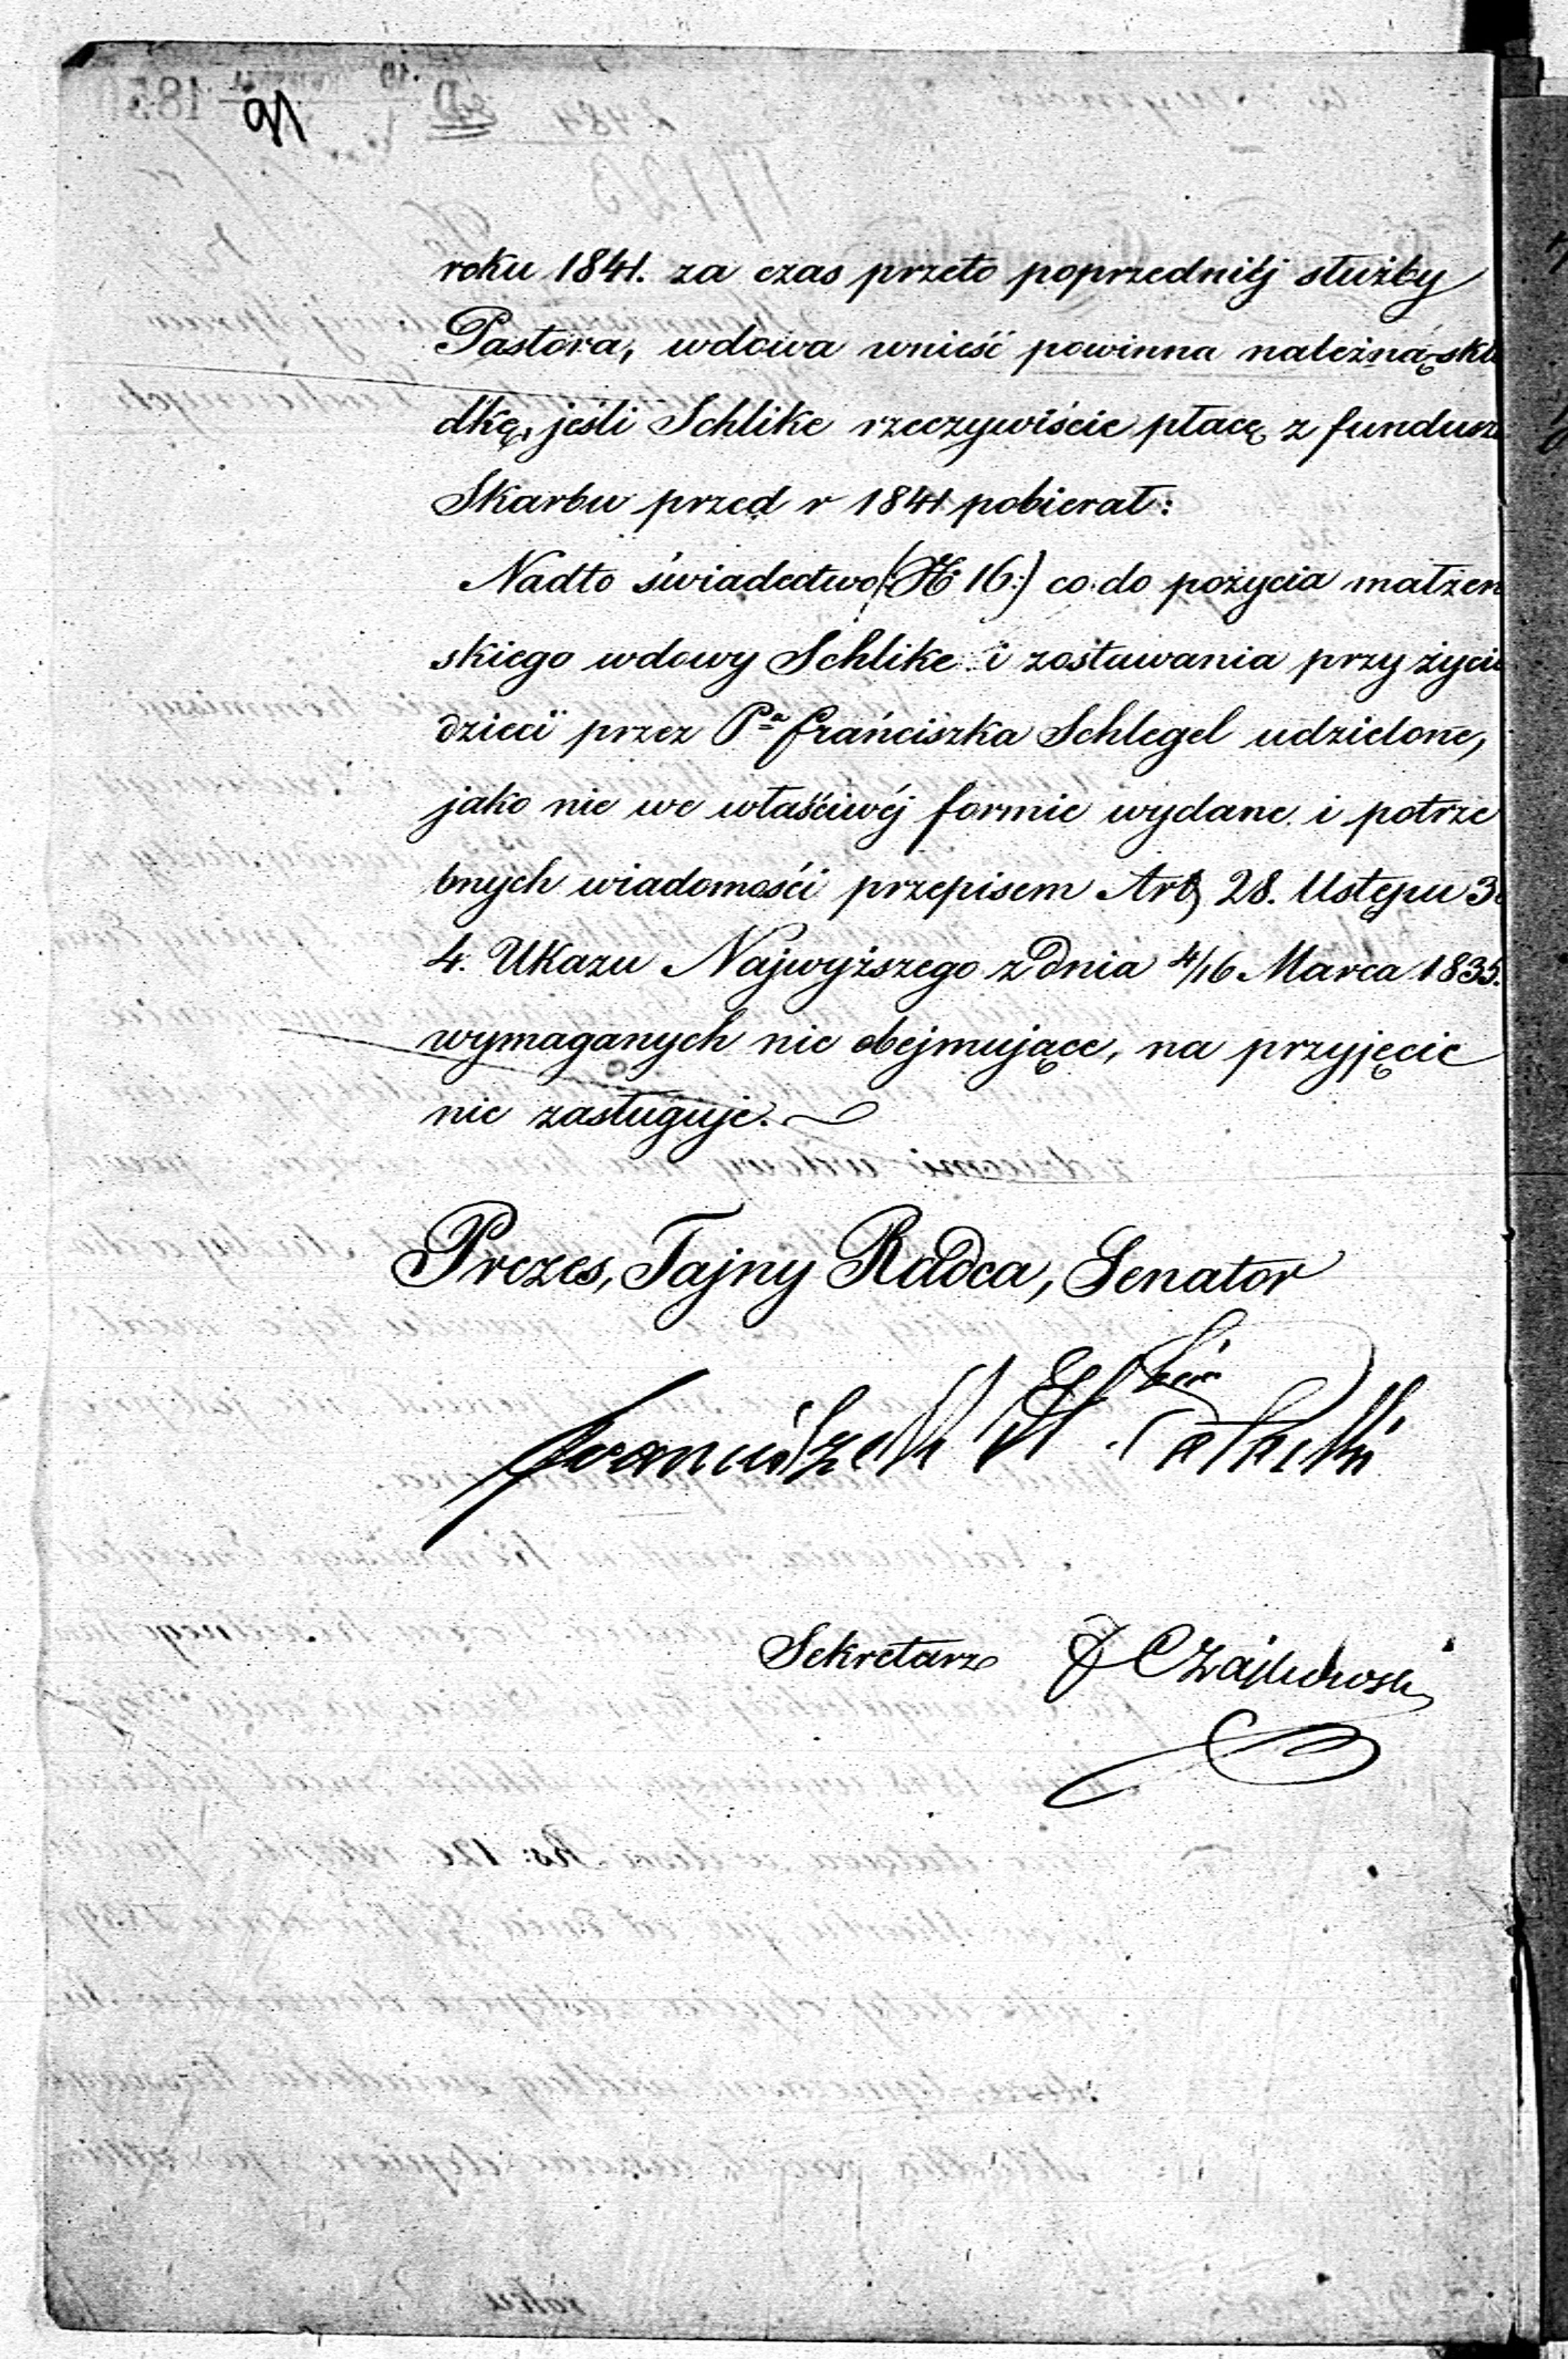 91
roku 1841. za czas przeto poprzedniéj służby
Pastora, wdowa wnieść powinna należną skła
dkę, jeśli Schlike rzeczywiście płacę z fundusz
Skarbu przed r 1841 pobierał:
Nadto świadectwo (:№ 16:) co do pożycia małżeń
skiego wdowy Schlike i zostawania przy życiu
dzieci przez Pa Franciszka Schlegel udzielone,
jako nie we właściwéj formie wydane i potrze
bnych wiadomości przepisem Art 28. Ustępu 3
4. Ukazu Najwyższego z dnia 4/16 Marca 1835.
wymaganych nie obejmujące, na przyjęcie
nie zasługuje.
Prezes, Tajny Radca, Senator
Franciszek
Sekretarz